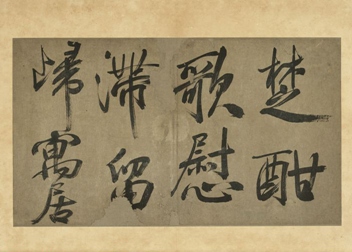 楚酣
歌慰
滞留
歸寓居